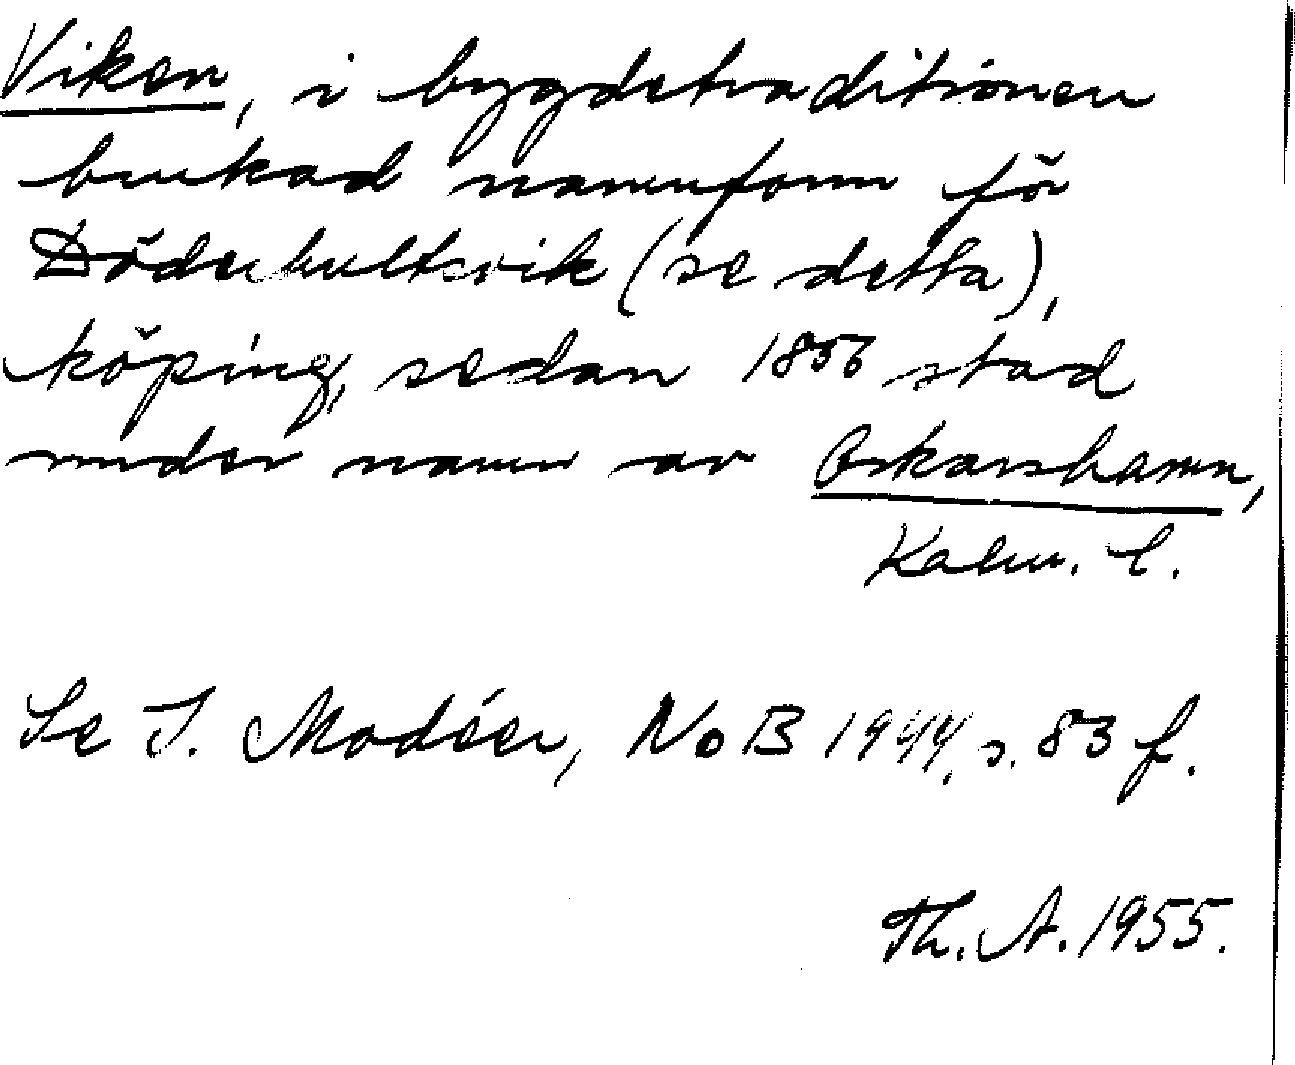 Viken, i bygdetraditionen
brukad namnform för
Döderhultsvik (se detta),
köping, sedan 1856 stad
under namn av Oskarshamn,
Kalm. l.
Se I. Modéer, NoB 1944, s. 83 f.
Th. A. 1955.